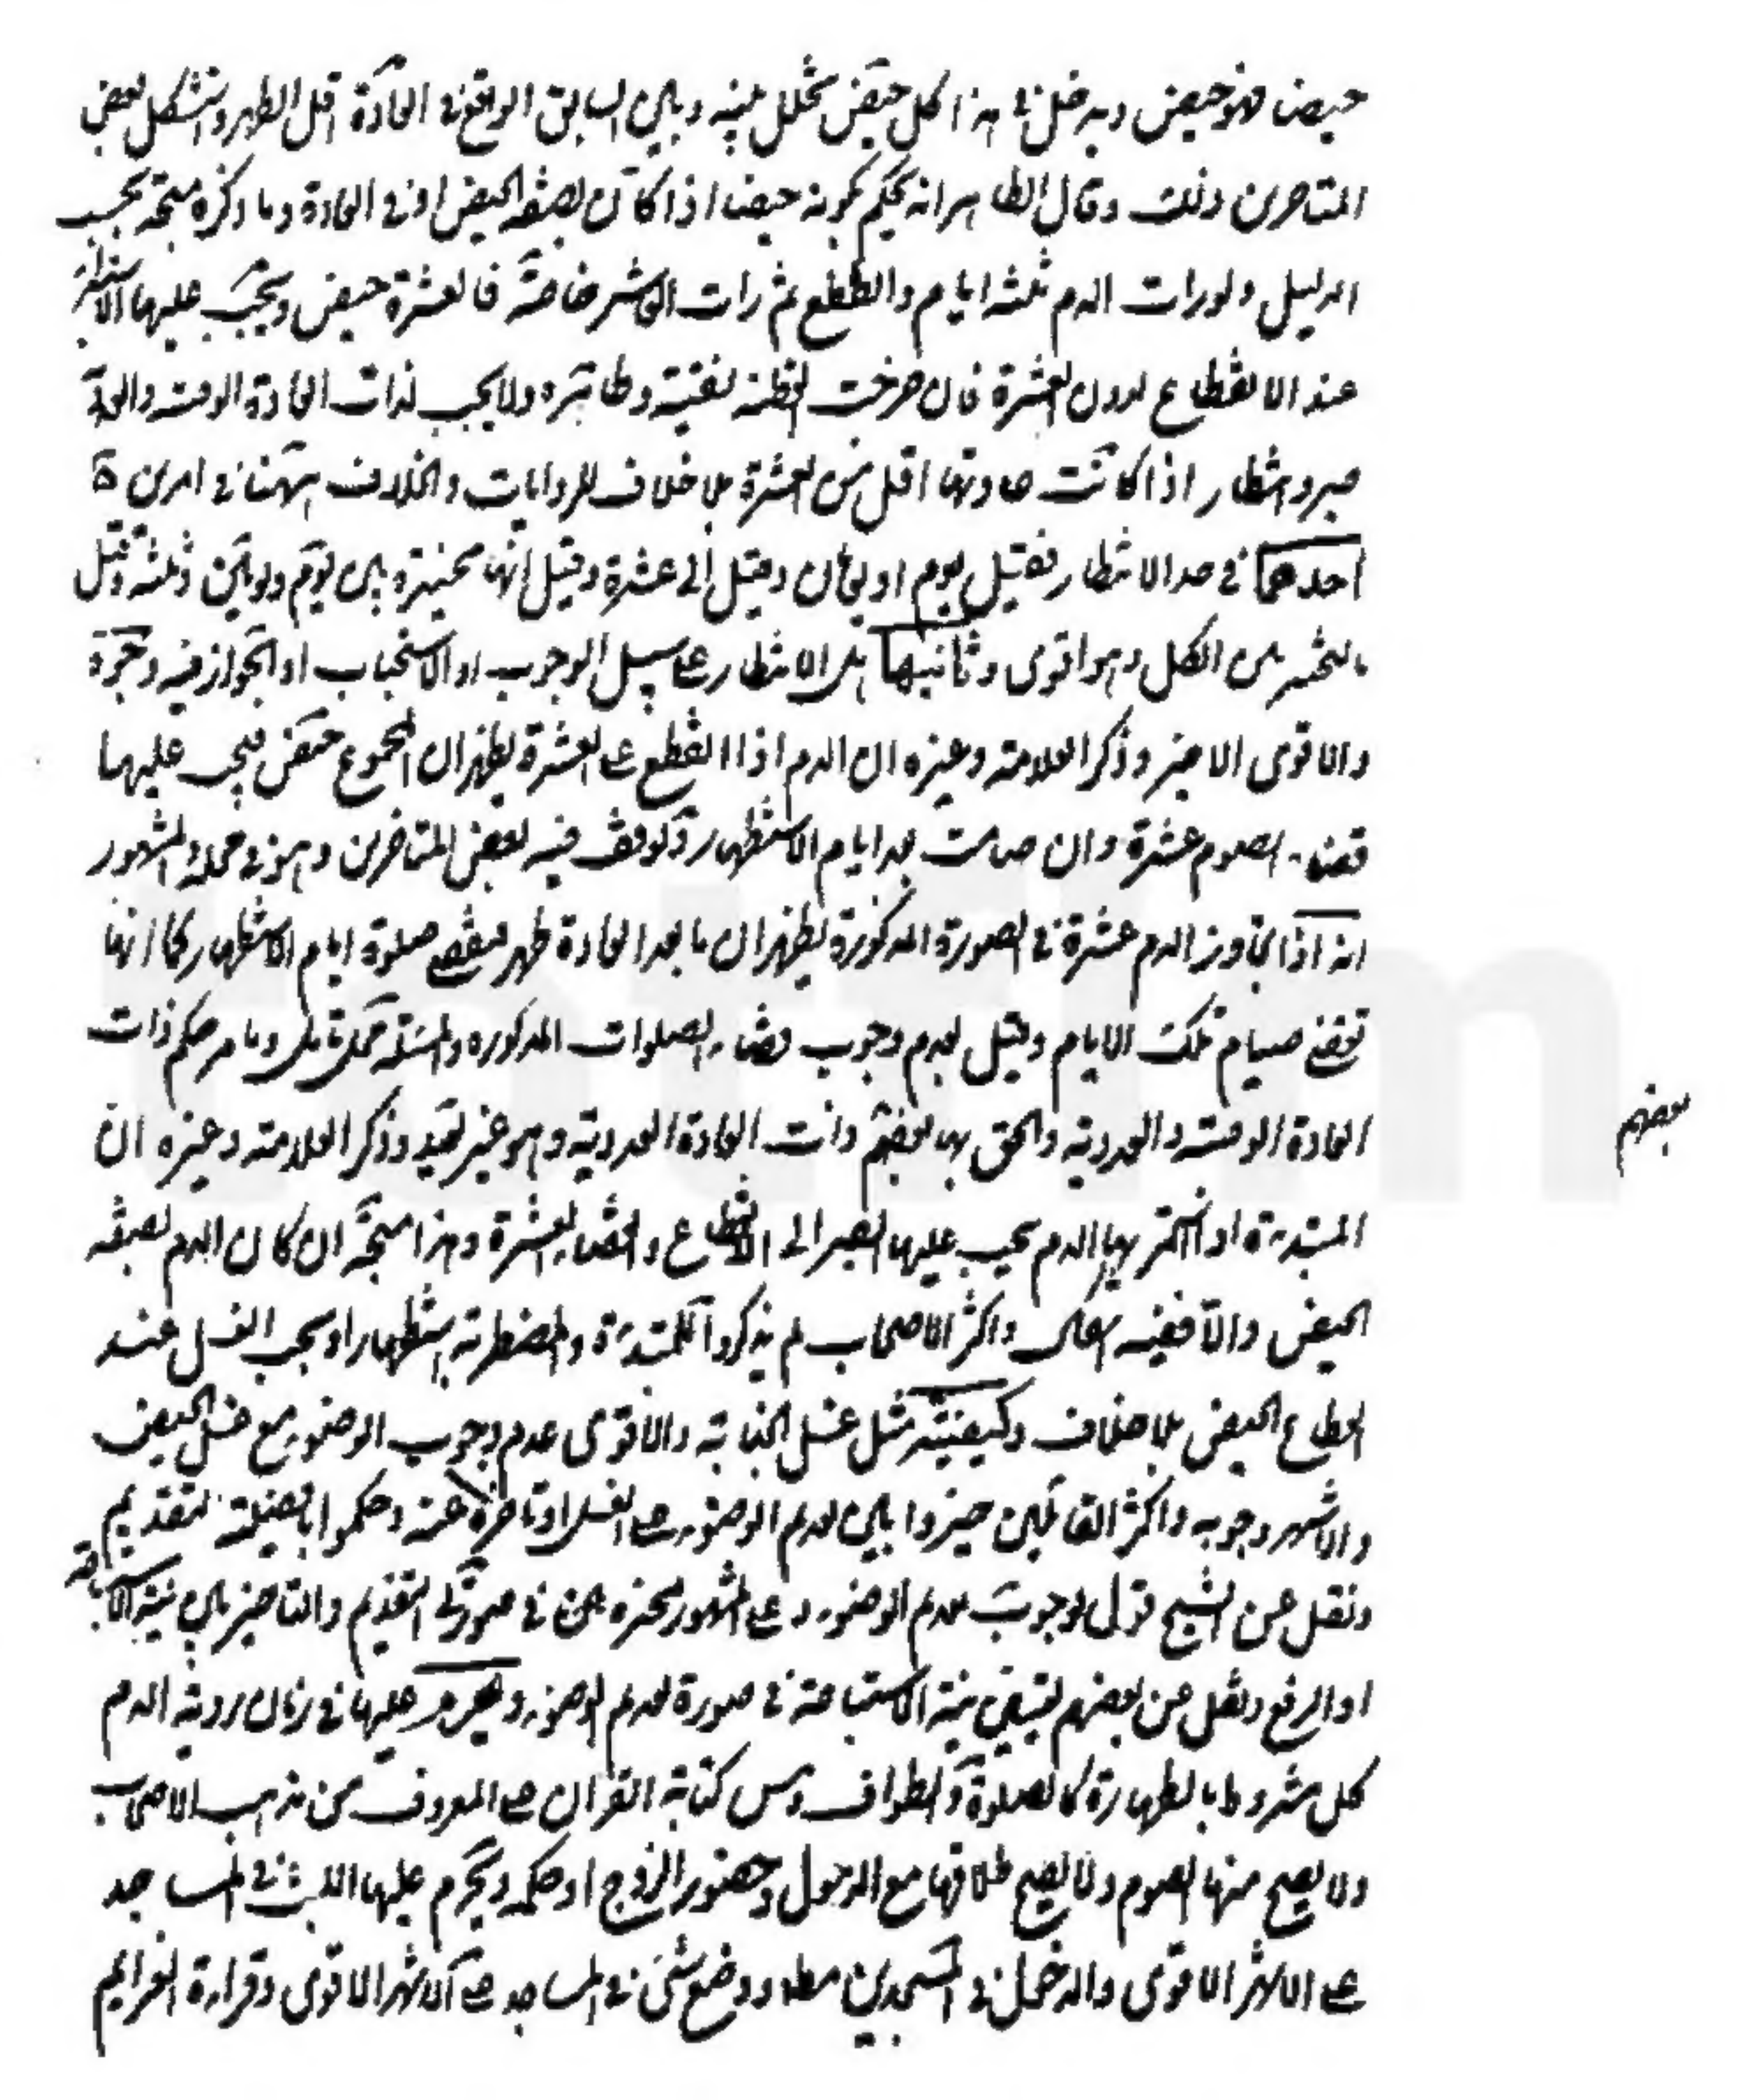 حيض فهو حيض ويدخل في هذا كل حيض تخلل بينه وبين السابق الواقع في العادة اقل الطهر واستشكل بعض
المتاخرين ذلك وقال الظاهر انه يحكم بكونه حيضا اذا كان بصفة الحيض او في العادة وما ذكره متجه بحسب
الدليل ولو رات الدم ثلثة ايام وانقطع ثم رات العاشر خاصة فالعشرة حيض ويجب عليها الاستبراء
عند الانقطاع لدون العشرة فان خرجت القطنة نقية وطاهرة ولا يجب لذات العادة الوقتية والعددية
صبر وانتظار اذا كانت عادتها اقل من العشرة بلا خلاف للروايات والخلاف ههنا في امرين
احدهما في حد الانتظار فقيل يوم او يومان وقيل الى عشرة وقيل انها مخيرة بين يوم ويومين وثلثة وقيل
بالتخيير بين الكل وهو اقوى وثانيهما هل الانتظار على سبيل الوجوب او الاستحباب او الجواز فيه وجوه
والاقوى الاخير وذكر العلامة وغيره ان الدم اذا انقطع على العشرة يظهر ان المجموع حيض فيجب عليها
قضاء الصوم عشرة وان صامت بعد ايام الاستظهار وتوقف فيه بعض المتاخرين وهو في محله والمشهور
انه اذا تجاوز الدم عشرة في الصورة المذكورة يظهر ان ما بعد العادة طهر فيقضى صلوة ايام الاستظهار كما انها
تقضي صيام تلك الايام وقيل بعدم وجوب قضاء الصلوات المذكورة والمسئلة محل تامل وما مر حكم ذات
العادة الوقتية والعددية والحق بها بعضهم ذات العادة العددية وهو غير بعيد وذكر العلامة وغيره ان
بعضهم
المبتدئة اذا استمر بها الدم يجب عليها الصبر الى الانقطاع وانقضاء العشرة وهذا متجه ان كان الدم بصفة
الحيض والا ففيه اشكال واكثر الاصحاب لم يذكروا للمبتدئة والمضطربة استظهارا ويجب الغسل عند
انقطاع الحيض بلا خلاف وكيفيته مثل غسل الجنابة والاقوى عدم وجوب الوضوء مع غسل الحيض
والاشهر وجوبه واكثر القائلين خيروا بين تقديم الوضوء على الغسل او تاخيره عنه وحكموا بافضلية التقديم
ونقل عن الشيخ قول بوجوب تقديم الوضوء وعلى المشهور تخيرت في صورتي التقديم والتاخير بين نية الاستباحة
او الرفع ونقل عن بعضهم تعيين نية الاستباحة في صورة تقديم الوضوء ويحرم عليها في زمان رؤية الدم
كل مشروط بالطهارة كالصلوة والطواف ومس كتابة القران على المعروف من مذهب الاصحاب
ولا يصح منها الصوم ولا يصح طلاقها مع الدخول وحضور الزوج او حكمه ويحرم عليها اللبث في المساجد
على الاشهر الاقوى والدخول في المسجدين مطلقا ووضع شيء في المساجد على الاشهر الاقوى وقراءة العزايم